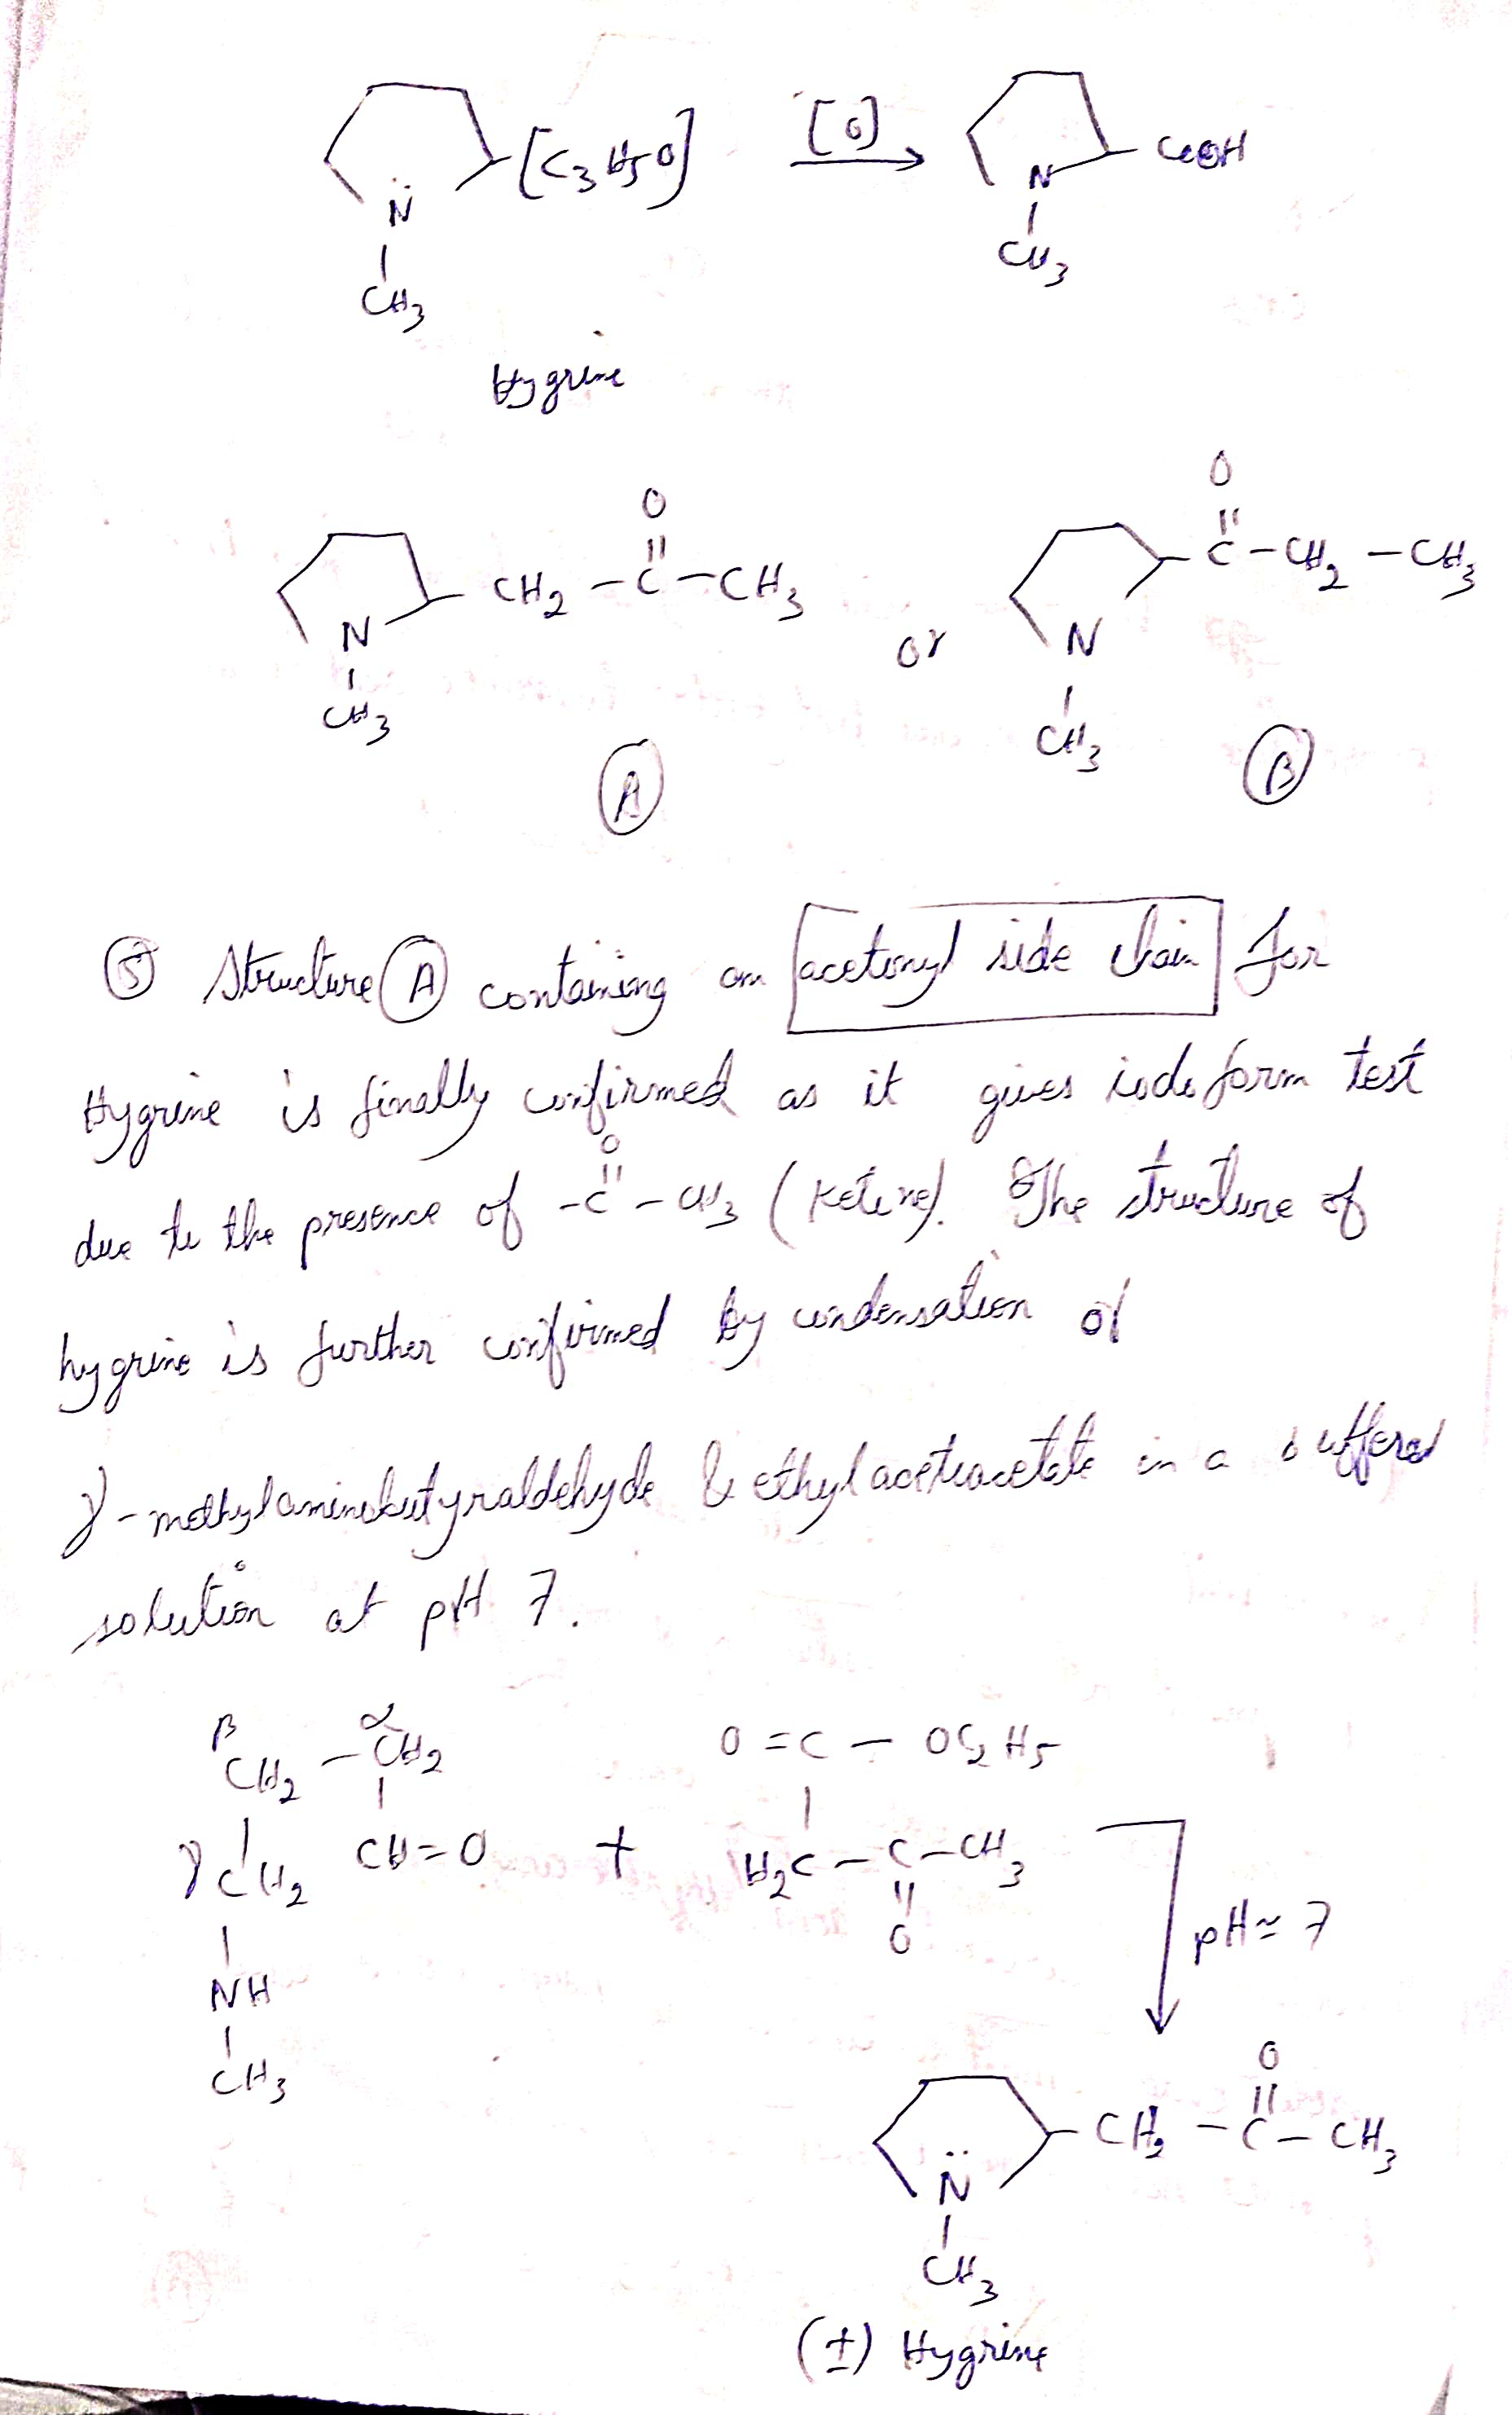 [C3H5O] [O] COOH
N N
CH3 CH3
Hygrine
O O
CH2 - C - CH3 C - CH2 - CH3
N or N
CH3 CH3
A B
⑤ Structure Ⓐ containing an acetonyl side chain for
Hygrine is finally confirmed as it gives iodoform test
due to the presence of -C - CH3 (Ketone). The structure of
O
hygrine is further confirmed by condensation of
γ - methylaminobutyraldehyde & ethylacetoacetate in a buffered
solution at pH 7.
β α
CH2 - CH2 O = C - OC2H5
γ CH2 CH = O + H2C - C - CH3
O
NH pH ≃ 7
CH3
O
CH2 - C - CH3
N
CH3
(±) Hygrine